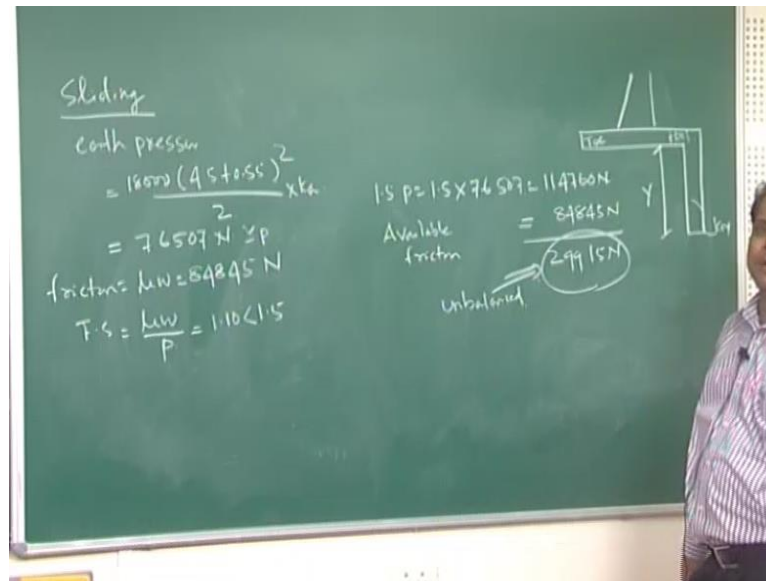 Sliding
earth pressure
= 18000 (4.5+0.55)² × ka
2
= 76507 N ≃ P
friction = μw = 84845 N
F.S = μw = 1.10 < 1.5
P
1.5 P = 1.5 × 76507 = 114760 N
Available = 84845 N
friction
29915 N
unbalanced
Toe
Y
Key